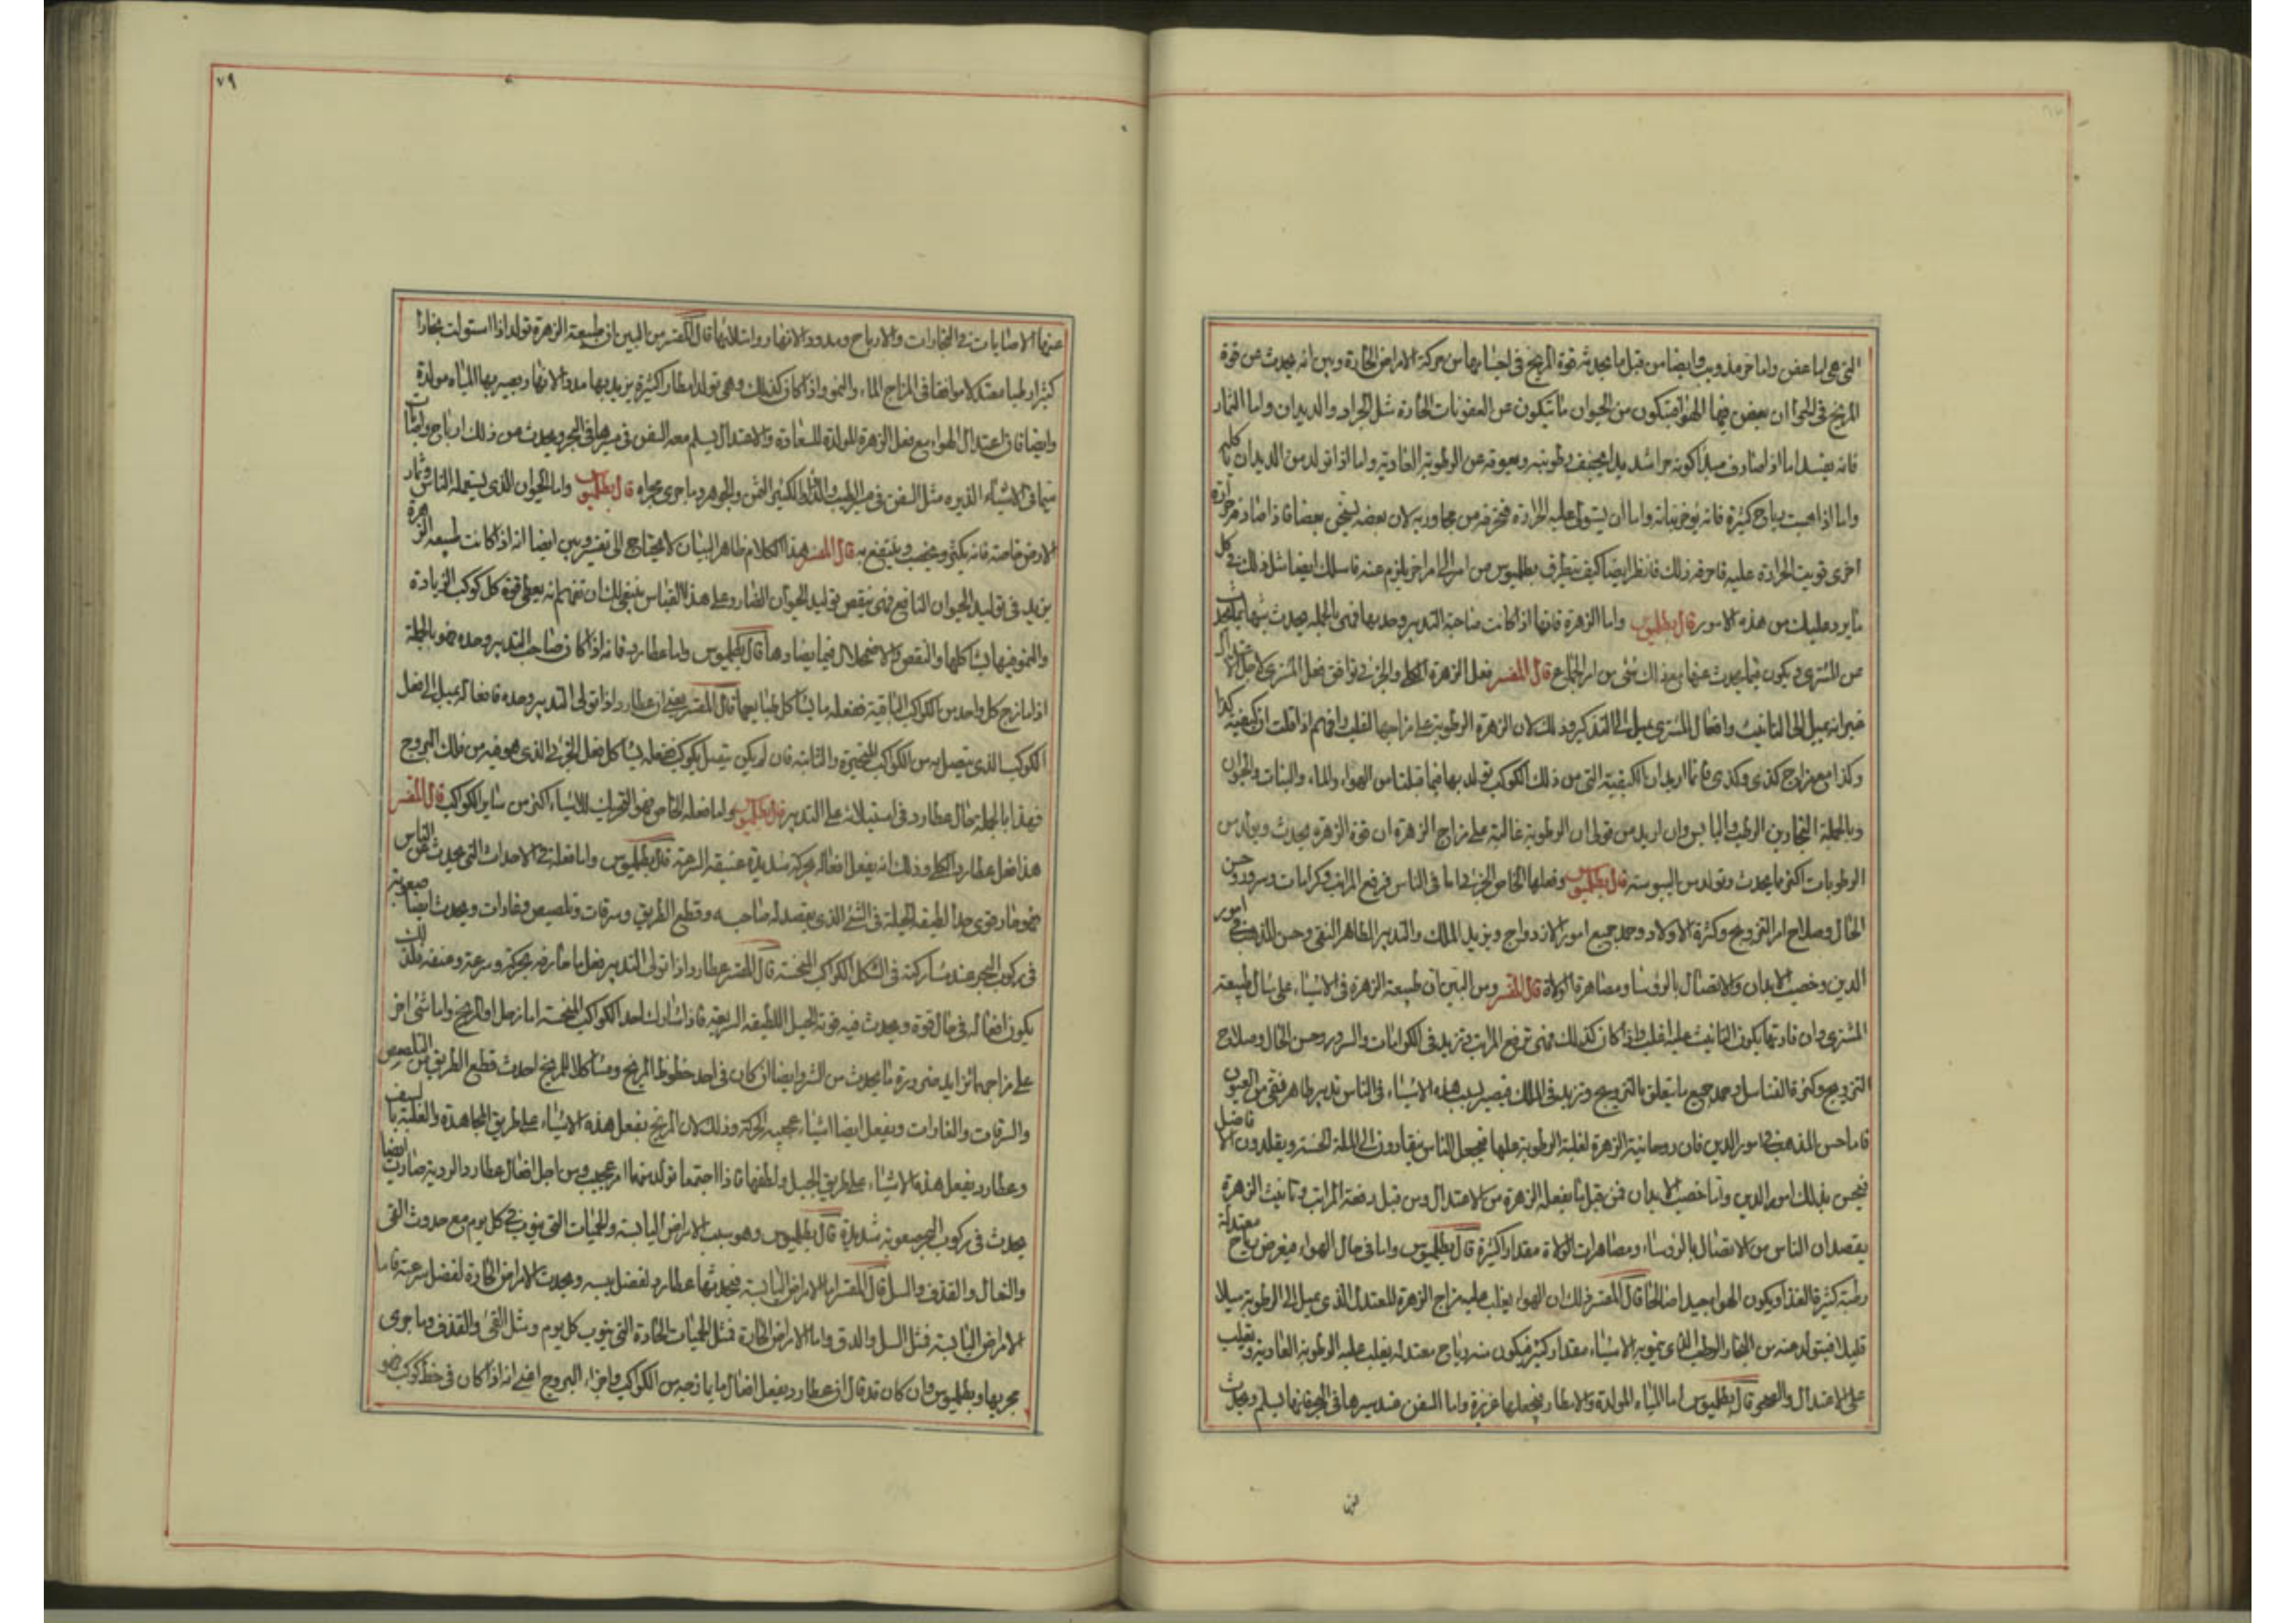 التي هي لها عفن واما خرمذوب وايضا من قبل ما يحدثه قوة المريخ في اجسامها من حركة الامراض الحادة وبين انه يحدث عن قوة
المريخ في الهواء ان يعفن فيها الهواء فيتكون من الحيوان ما يتكون عن العفونات الحادة مثل الجراد والديدان واما الثمار
فانه يفسد اما اذا صادف مبدا كونه حرا شديدا يجفف رطوبته ويعوقه عن الرطوبة الغاذية واما اذا تولد من الديدان تاكلها
واما اذا هبت رياح كثيرة فانه واما ان يستولى عليه الحرارة فتحرقه من مجاوريه لان بعضه يسخن بعضا فاذا صادف حرارة
اخرى قويت الحرارة عليه فاحرقه ذلك فانظر ايضا كيف يتطرق بطلميوس من امر الى امر اخر يلزم عنه فاسلك ايضا مثل ذلك في كل
ما يرد عليك من هذه الامور قال بطلميوس واما الزهرة فانها اذا كانت صاحبة التدبير وحدها فهى بالجملة يحدث شبيها بما يحدث
عن المشترى ويكون فيما يحدث عنها مع ذلك شى من امر الجماع قال المفسر فعل الزهرة الكلى والجزئى توافق فعل المشترى لاجل الاعتدال
غير انه يميل الى التانيث وافعال المشترى يميل الى التذكير وذلك لان الزهرة الرطوبة على مزاجها اغلب وافهم اذا قلت ان كيفية كذا
وكذا مع مزاج كذى وكذى فانما اريد ان الكيفية التى من ذلك الكوكب تولد بها فيما قبلنا من الهواء والماء والنبات والحيوان
وبالجملة البخارين الرطب واليابس وان اريد من قولى ان الرطوبة غالبة على مزاج الزهرة ان قوة الزهرة يحدث ويولد من
الرطوبات اكثر ما يحدث وتولد من اليبوسة قال بطلميوس وفعلها الخاص الجزئى اما فى الناس فرفع المراتب وكرامات وسرور وحسن
الحال وصلاح امر التزويج وكثرة الاولاد وحمد جميع امور الازدواج ويزيد الملك والتدبير الظاهر النقى وحسن المذهب فى امور
الدين وخصب الابدان والاتصال بالرؤسا ومصاهرة الولاة قال المفسر ومن البين ان طبيعة الزهرة فى الاشياء على مثال طبيعة
المشترى وان قارنها يكون التانيث عليها اغلب واذا كان كذلك فهى ترفع المراتب وتزيد فى الكرامات والسرور وحسن الحال وصلاح
التزويج وكثرة التناسل وحمد جميع ما يتعلق بالتزويج وتزيد فى الملك فيصير بسبب هذه الاشياء فى الناس تدبير ظاهر نقى من العيوب
فاما حسن المذهب فى امور الدين فان روحانية الزهرة لغلبة الرطوبة عليها فيجعل الناس ينقادون الى الملة الحسنة ويقلدون الافاضل
فيحسن بذلك امور الدين واما خصب الابدان فمن قبل ما يفعله الزهرة من الاعتدال ومن قبل رفعة المراتب وتانيث الزهرة
يقصدان الناس من الاتصال بالرؤساء ومصاهرات الولاة مقدارا كثيرة قال بطلميوس واما فى حال الهواء فيعرض رياح معتدلة
رطبة كثيرة الغذا ويكون الهوا جيدا صالحا قال المفسر ذلك ان الهواء يغلب عليه مزاج الزهرة المعتدل الذى يميل الى الرطوبة ميلا
قليلا فيتولد عنه من البخار الرطب الذى يتموبه الاشياء مقدار كثير فيكون منه رياح معتدله يغلب عليه الرطوبة الغاذية ويغلب
على الاعتدال والصحو قال بطلميوس اما المياه المولدة والامطار فيجعلها غزيرة واما السفن فعند سيرها فى البحر فانها يسلم ويحدث
٧٩
عنها الاصابات فى التجارات والارباح ومدود الانهار وامتلائها قال المفسر من البين ان طبيعة الزهرة تولد اذا استولت بخارا
كثيرا رطبا معتدلا موافقا فى المزاج الماء والنمو واذا كان كذلك وهى تولد امطار كثيرة يزيد بها مدود الانهار ويصير بها المياه مولدة
وايضا فان اعتدال الهواء مع فعل الزهرة المولدة للسعادة والاعتدال يسلم معه السفن فى سيرها فى البحر ويحدث من ذلك ارباح واصابات
سيما فى الاشياء مثل السفن فى والكثير الثمن والجوهر وما جرى مجراه قال بطلميوس واما الحيوان الذى يستعمله الناس وثمار
الارض خاصة فانه يكثر ويخصب وينتفع به قال المفسر هذا الكلام ظاهر البيان لا يحتاج الى تفسير وبين ايضا انه اذا كانت طبيعه الزهرة
يزيد فى توليد الحيوان النافع فهى ينقص توليد الحيوان الضار وعلى هذا القياس ينبغى لك ان تفهم انه يعطى قوة كل كوكب الزيادة
والنمو فيما يشاكلها والنقص والاضمحلال فيما يضادها قال بطلميوس واما عطارد فانه اذا كان صاحب التدبير وحده فهو بالجملة
اذا مازج كل واحد من الكواكب الباقية ففعله ما يشاكل طبايعها قال المفسر يعنى ان عطارد اذا تولى التدبير وحده فافعاله يميل الى فعل
الكوكب الذى يتصل به من الكواكب المتحيرة والثابته فان لم يكن يتصل بكوكب ففعله يشاكل فعل الجزء الذى هو فيه من فلك البروج
فهذا بالجملة حال عطارد فى استيلائه على التدبير قال بطلميوس واما فعله الخاص فهو التحريك للاشياء اكثر من سائر الكواكب قال المفسر
هذا فعل عطارد الكلى وذلك انه يفعل افعاله بحركة شديدة عنيفة السرعة قال بطلميوس واما فعله فى الاحداث التى يحدث الناس
فهو حار وقوى جدا لطيف الحيلة فى الشى الذى يقصد له صاحبه وقطع الطريق وسرقات وتلصيص وغارات ويحدث ايضا صعوبة
فى ركوب البحر عند مشاركته فى الشكل الكواكب المنحسة قال المفسر عطارد اذا تولى التدبير فعل بحركته وسرعة وعنف فلذلك
يكون افعاله فى حال قوة ويحدث فيه قوة الحيل اللطيفة السريعة فاذا شارك احد الكواكب المنحسة اما زحل او المريخ واما شى اخر
على مزاجهما تزايد ضرورة ما يحدث من الشر وايضا ان كان فى احد حظوظ المريخ ومشاكلا للمريخ احدث قطع الطريق من التلصص
والسرقات والغارات ويفعل ايضا اشياء عجيبة الحركة وذلك لان المريخ يفعل هذه الاشياء على طريق المجاهدة والغلبة بالسيف
وعطارد يفعل هذه الاشياء على طريق الحيل ولطفها فاذا اجتمعا تولد منهما امر عجيب ومن اجل افعال عطارد الردية صارت ايضا
يحدث فى ركوب البحر صعوبة شديدة قال بطلميوس وهو سبب الامراض اليابسة والحميات التى ينوب فى كل يوم مع حدوث القى
والسعال والقذف والسل قال المفسر اما الامراض اليابسة فيحدثها عطارد لفضل يبسه ويحدث الامراض الحادة لفضل سرعته فاما
الامراض اليابسة فمثل السل والدق واما الامراض الحادة فمثل الحميات الحادة التى ينوب كل يوم ومثل القئ والقذف وما جرى
مجريها وبطلميوس وان كان قد قال ان عطارد يفعل افعال ما يمازجه من الكواكب واجزاء البروج اعنى انه اذا كان فى حظ كوكب فهو